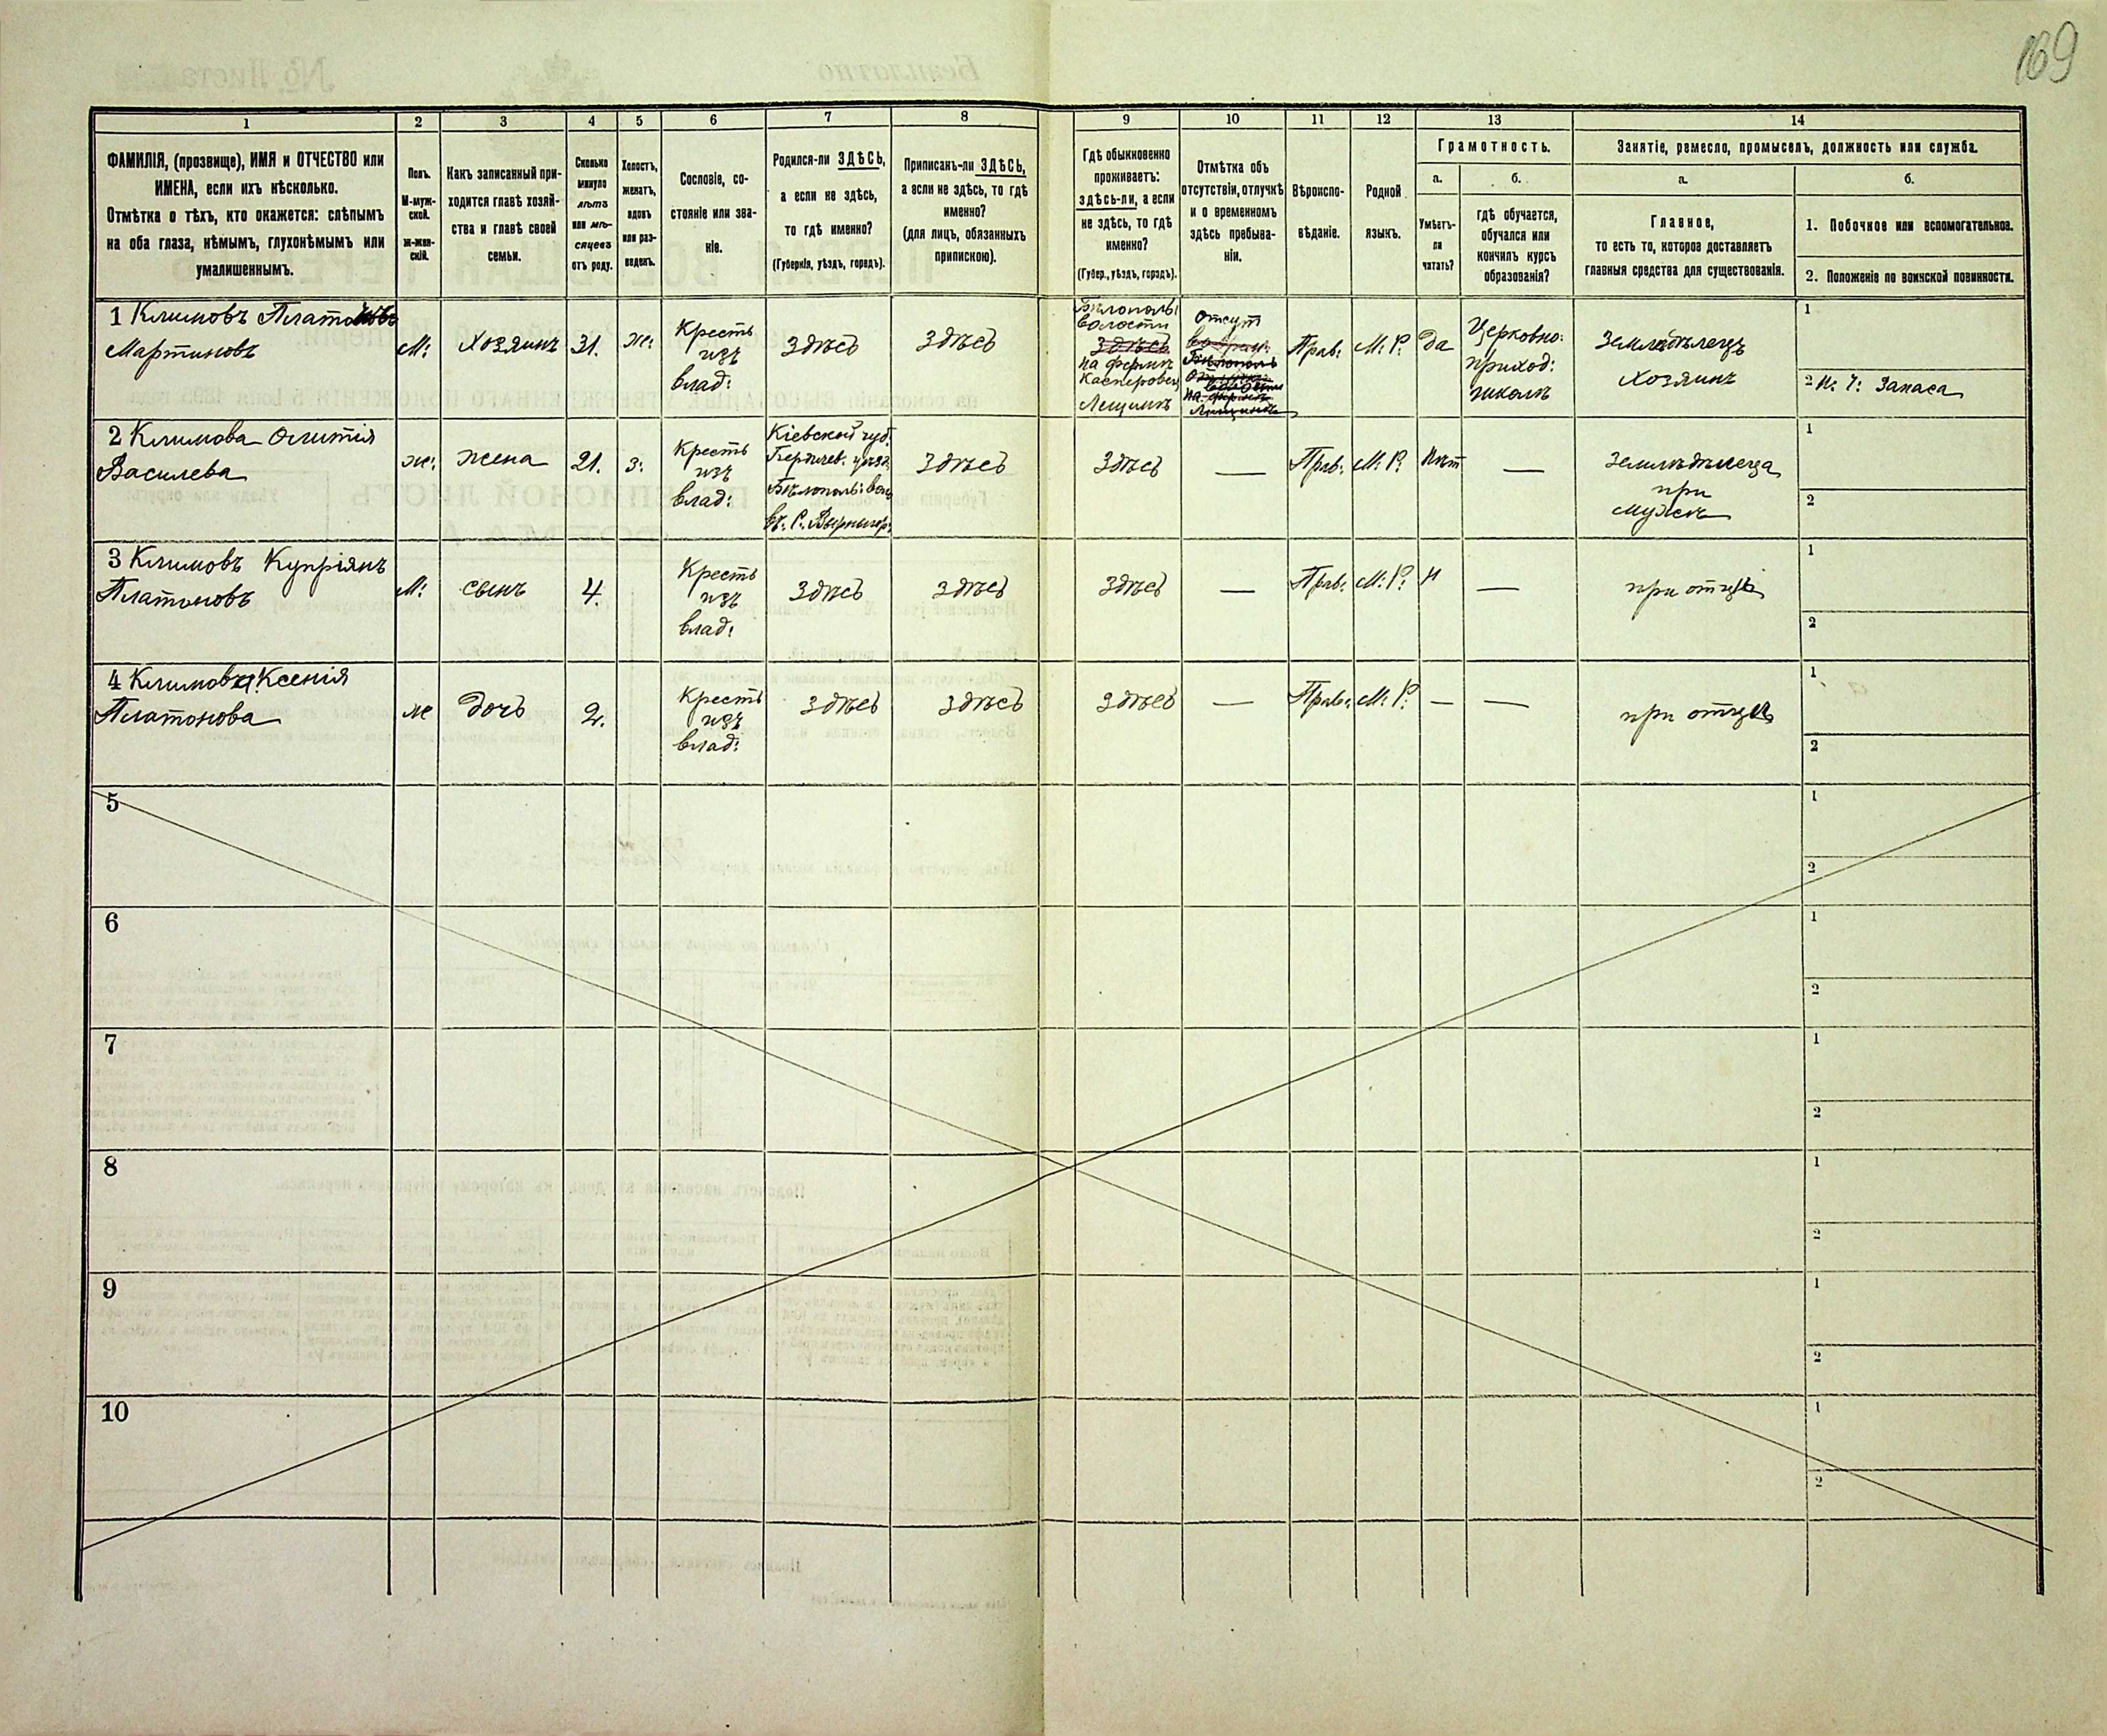 169
1
2
3
4
5
6
7
8
9
10
11
12
13
14
ФАМИЛІЯ, (прозвище), ИМЯ и ОТЧЕСТВО или
ИМЕНА, если ихъ нѣсколько.
Отмѣтка о тѣхъ, кто окажется: слѣпымъ
на оба глаза, нѣмымъ, глухонѣмымъ или
умалишеннымъ.
Полъ.
М-муж-
ской.
Ж-жен-
скій.
Какъ записанный при-
ходится главѣ хозяй-
ства и главѣ своей
семьи.
Сколько
минуло
лѣтъ
или мѣ-
сяцевъ
отъ роду.
Холостъ,
женатъ,
вдовъ
или раз-
веденъ.
Сословіе, со-
стояніе или зва-
ніе.
Родился-ли ЗДѢСЬ,
а если не здѣсь,
то гдѣ именно?
(Губернія, уѣздъ, городъ).
Приписанъ-ли ЗДѢСЬ,
а если не здѣсь, то гдѣ
именно?
(для лицъ, обязанныхъ
припискою).
Гдѣ обыкновенно
проживаетъ:
здѣсь-ли, а если
не здѣсь, то гдѣ
именно?
(Губер., уѣздъ, городъ).
Отмѣтка объ
отсутствіи, отлучкѣ
и о временномъ
здѣсь пребыва-
ніи.
Вѣроиспо-
вѣданіе.
Родной
языкъ.
Грамотность.
а.
Умѣетъ-
ли
читать?
б.
гдѣ обучается,
обучался или
кончилъ курсъ
образованія?
Занятіе, ремесло, промыселъ, должность или служба.
а.
Главное,
то есть то, которое доставляетъ
главныя средства для существованія.
б.
1. Побочное или вспомогательное.
2. Положеніе по воинской повинности.
1 Климовъ Платонъ
Мартиновъ
М:
Хозяинъ
31.
ж:
Кресть
изъ
влад:
Здѣсь
Здѣсь
Бѣлополь:
волости
Здѣсь
на фермѣ
Лещинѣ
отсут
Прав:
М: Р:
да
Церковно:
приход:
школѣ
Земледѣлецъ
Хозяинъ
1
2 Запаса
2 Климова
Василева
ж:
жена
21.
з:
Кресть
изъ
влад:
Кіевской губ.
Бердичев. уѣзд.
Бѣлополь: вол
Здѣсь
Здѣсь
—
Прав:
М: Р:
Нѣт
—
Земледѣлеца
при
мужѣ
1
2
3 Климовъ Купріянъ
Платоновъ
М:
сынъ
4.
Кресть
изъ
влад:
Здѣсь
Здѣсь
Здѣсь
—
Прав:
М: Р:
Н
—
при отцѣ
1
2
4 Климова Ксенія
Платонова
ж
дочь
2.
Кресть
изъ
влад:
Здѣсь
Здѣсь
Здѣсь
—
Прав:
М: Р:
—
—
при отцѣ
1
2
5
1
2
6
1
2
7
1
2
8
1
2
9
1
2
10
1
2